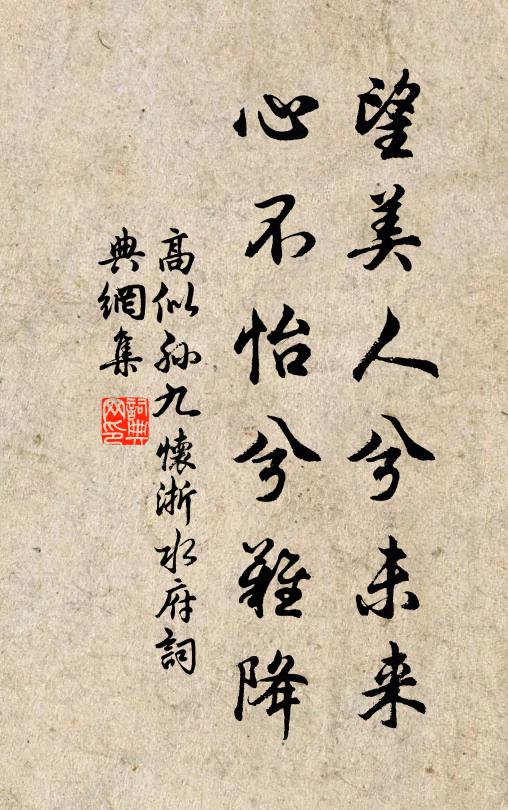 望美人兮未来
心不怡兮難降
高似孙九懷浙水府詞
典網集
詞典网印